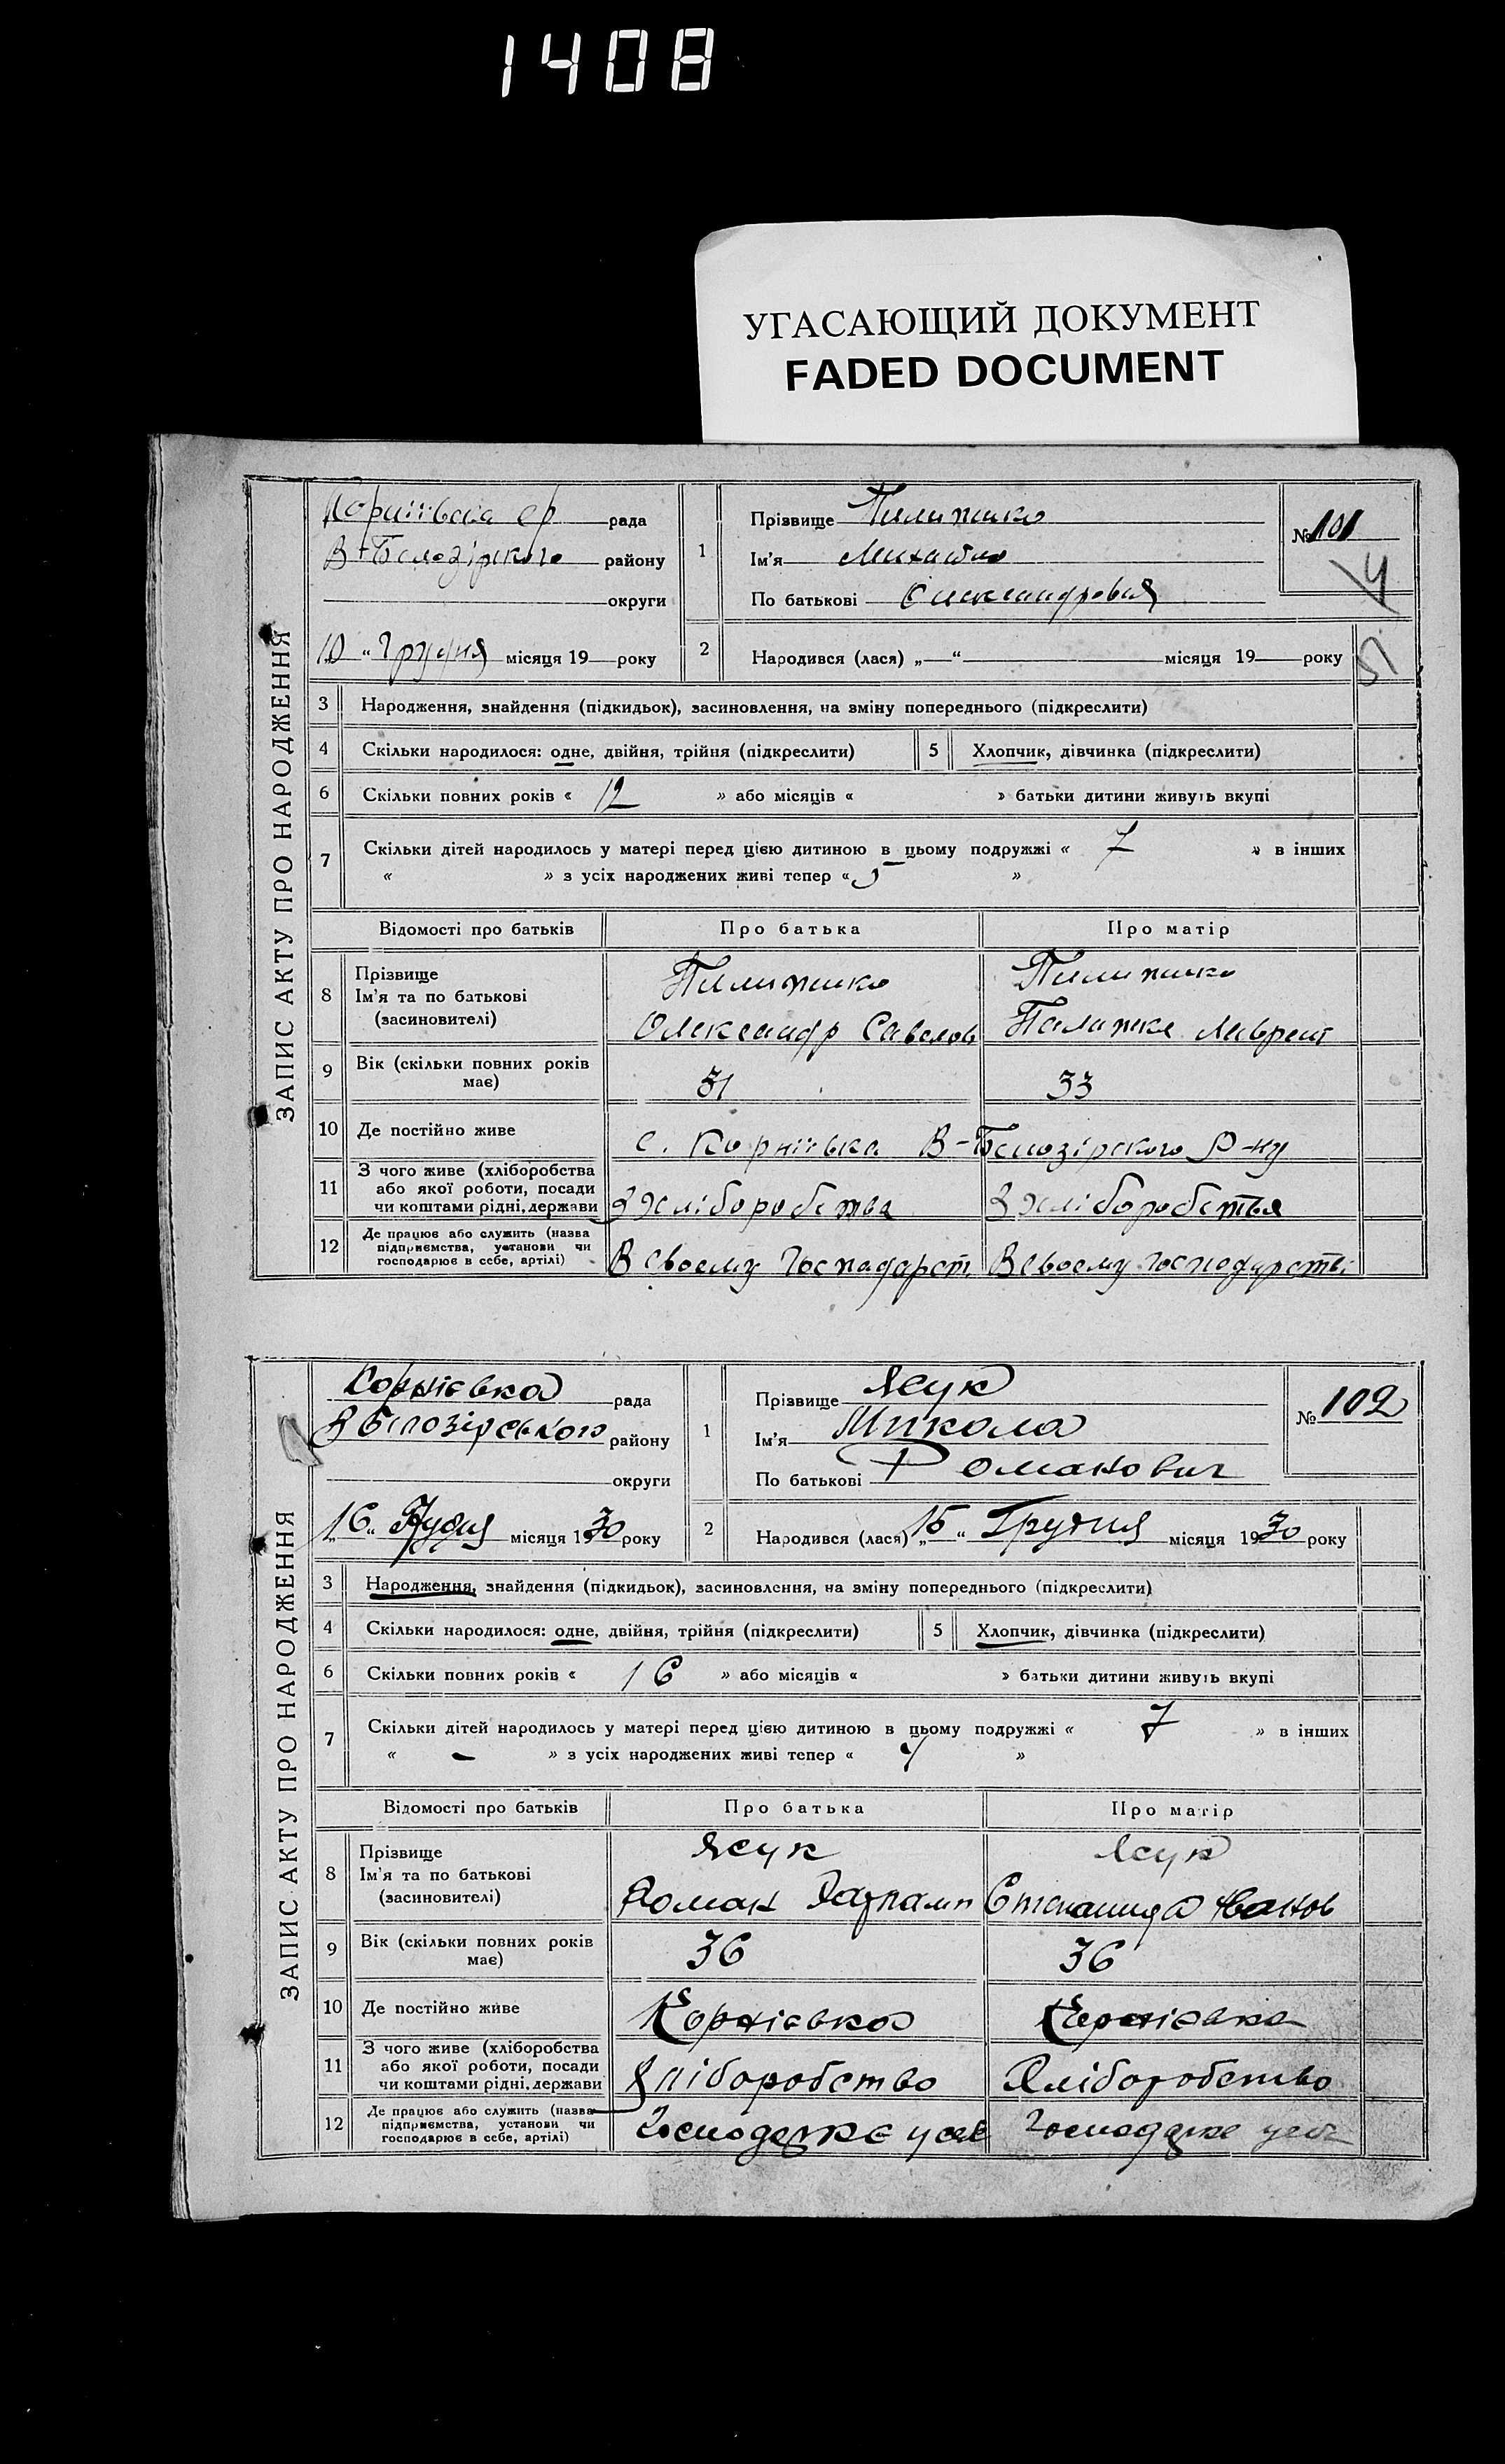 1408
УГАСАЮЩИЙ ДОКУМЕНТ
FADED DOCUMENT
ЗАПИС АКТУ ПРО НАРОДЖЕННЯ
Корнїївська ср рада
В-Білозірского району
округи
10 „ грудня місяця 19 року
1
Прізвище Пилипико
Ім'я Михайло
По батькові Олександрович
№ 101
14
51
2 Народився (лася) „ “ місяця 19 року
3 Народження, знайдення (підкидьок), засиновлення, на зміну попереднього (підкреслити)
4 Скільки народилося: одне, двійня, трійня (підкреслити) 5 Хлопчик, дівчинка (підкреслити)
6 Скільки повних років « 12 » або місяців « » батьки дитини живуть вкупі
7 Скільки дітей народилось у матері перед цією дитиною в цьому подружжі « 7 » в інших
« » з усіх народжених живі тепер « 5 »
Відомості про батьків Про батька Про матір
8 Прізвище
Ім'я та по батькові
(засиновителі)
Пилипико
Олександр Савелов
Пилипико
Палажка Лаврент
9 Вік (скільки повних років має) 31 33
10 Де постійно живе с. Корнїївка В-Білозірского Р-ну
11 З чого живе (хліборобства
або якої роботи, посади
чи коштами рідні, держави
З хліборобства З хліборобства
12 Де працює або служить (назва
підприємства, установи чи
господарює в себе, артілі)
В своєму Господарст В своєму господарстві
ЗАПИС АКТУ ПРО НАРОДЖЕННЯ
Корнієвка рада
В Білозірського району
округи
„16„ Грудня місяця 1930 року
1
Прізвище Ясук
Ім'я Микола
По батькові Романович
№ 102
2 Народився (лася) „15 “ Грудня місяця 1930 року
3 Народження, знайдення (підкидьок), засиновлення, на зміну попереднього (підкреслити)
4 Скільки народилося: одне, двійня, трійня (підкреслити) 5 Хлопчик, дівчинка (підкреслити)
6 Скільки повних років « 16 » або місяців « » батьки дитини живуть вкупі
7 Скільки дітей народилось у матері перед цією дитиною в цьому подружжі « 7 » в інших
« – » з усіх народжених живі тепер « »
Відомості про батьків Про батька Про матір
8 Прізвище
Ім'я та по батькові
(засиновителі)
Ясук
Роман Харламп
Ясук
Степанида Іванов
9 Вік (скільки повних років має) 36 36
10 Де постійно живе Корнієвка Корнієвка
11 З чого живе (хліборобства
або якої роботи, посади
чи коштами рідні, держави
Хліборобство Хліборобство
12 Де працює або служить (назва
підприємства, установи чи
господарює в себе, артілі)